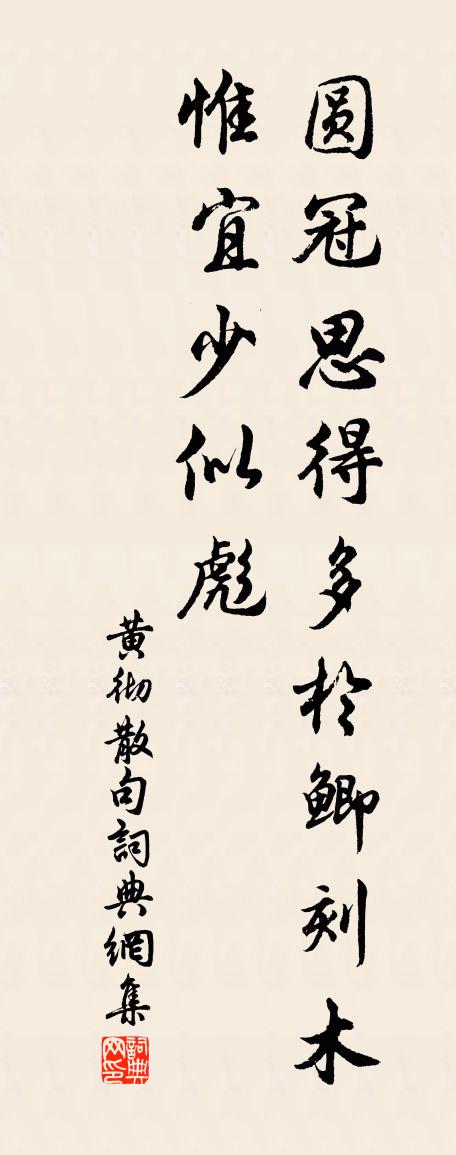 圓冠思得多於鯽刻木
惟宜少似彪
黄彻散句詞典網集
詞典网印